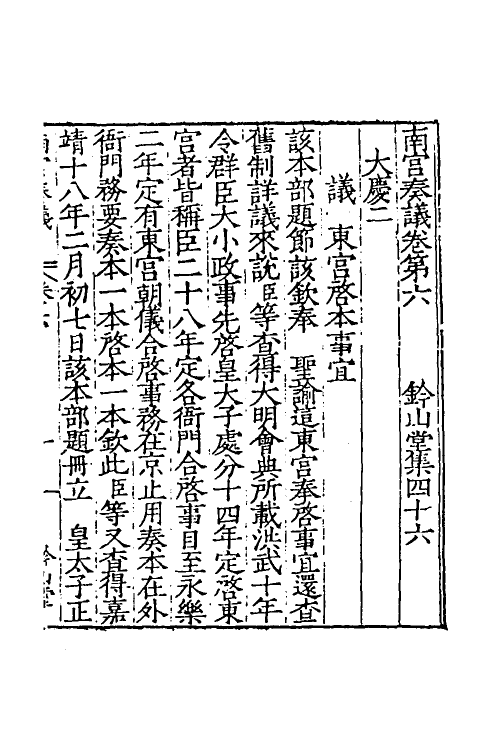 南宮奏議卷第六　　鈐山堂集四十六
大慶二
議　東宮啓本事宜
該本部題節該欽奉　聖諭這東宮奏啓事宜還查
舊制詳議來說臣等查得大明會典所載洪武十年
令群臣大小政事先啓皇太子處分十四年定啓東
宮者皆稱臣二十八年定各衙門合啓事目至永樂
二年定有東宮朝儀合啓事務在京止用奏本在外
衙門務要奏本一本啓本一本欽此臣等又查得嘉
靖十八年二月初七日該本部題冊立　皇太子正